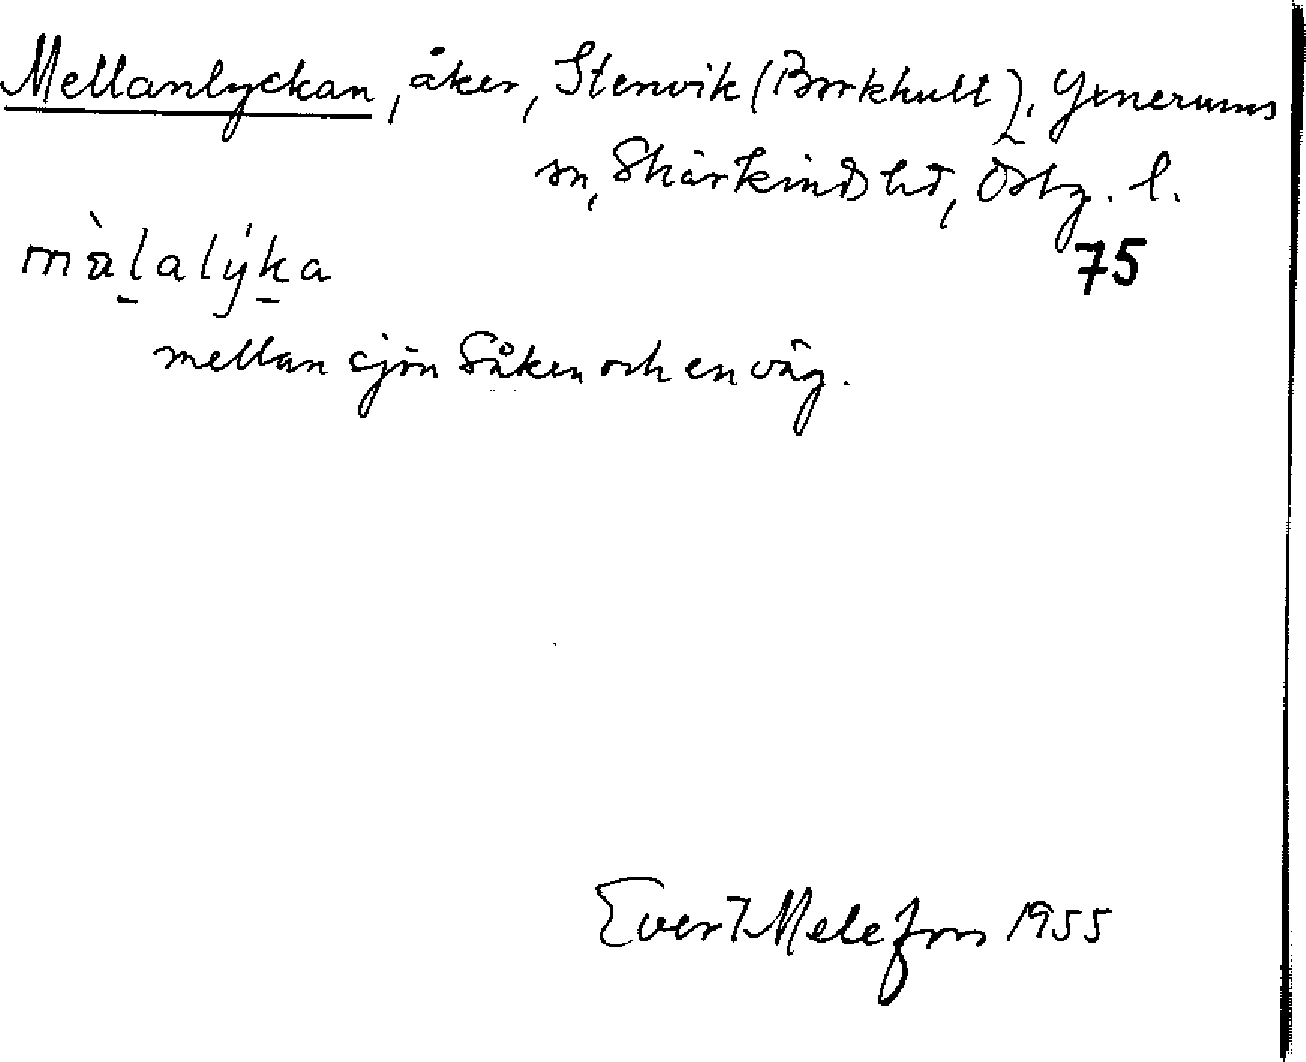 Mellanlyckan, åker, Stenvik (Borkhult), Yxnerums
sn, Skärkinds hd, Östg. l.
75
mälalýka
mellan sjön Såken och en väg.
Evert Melefors 1955